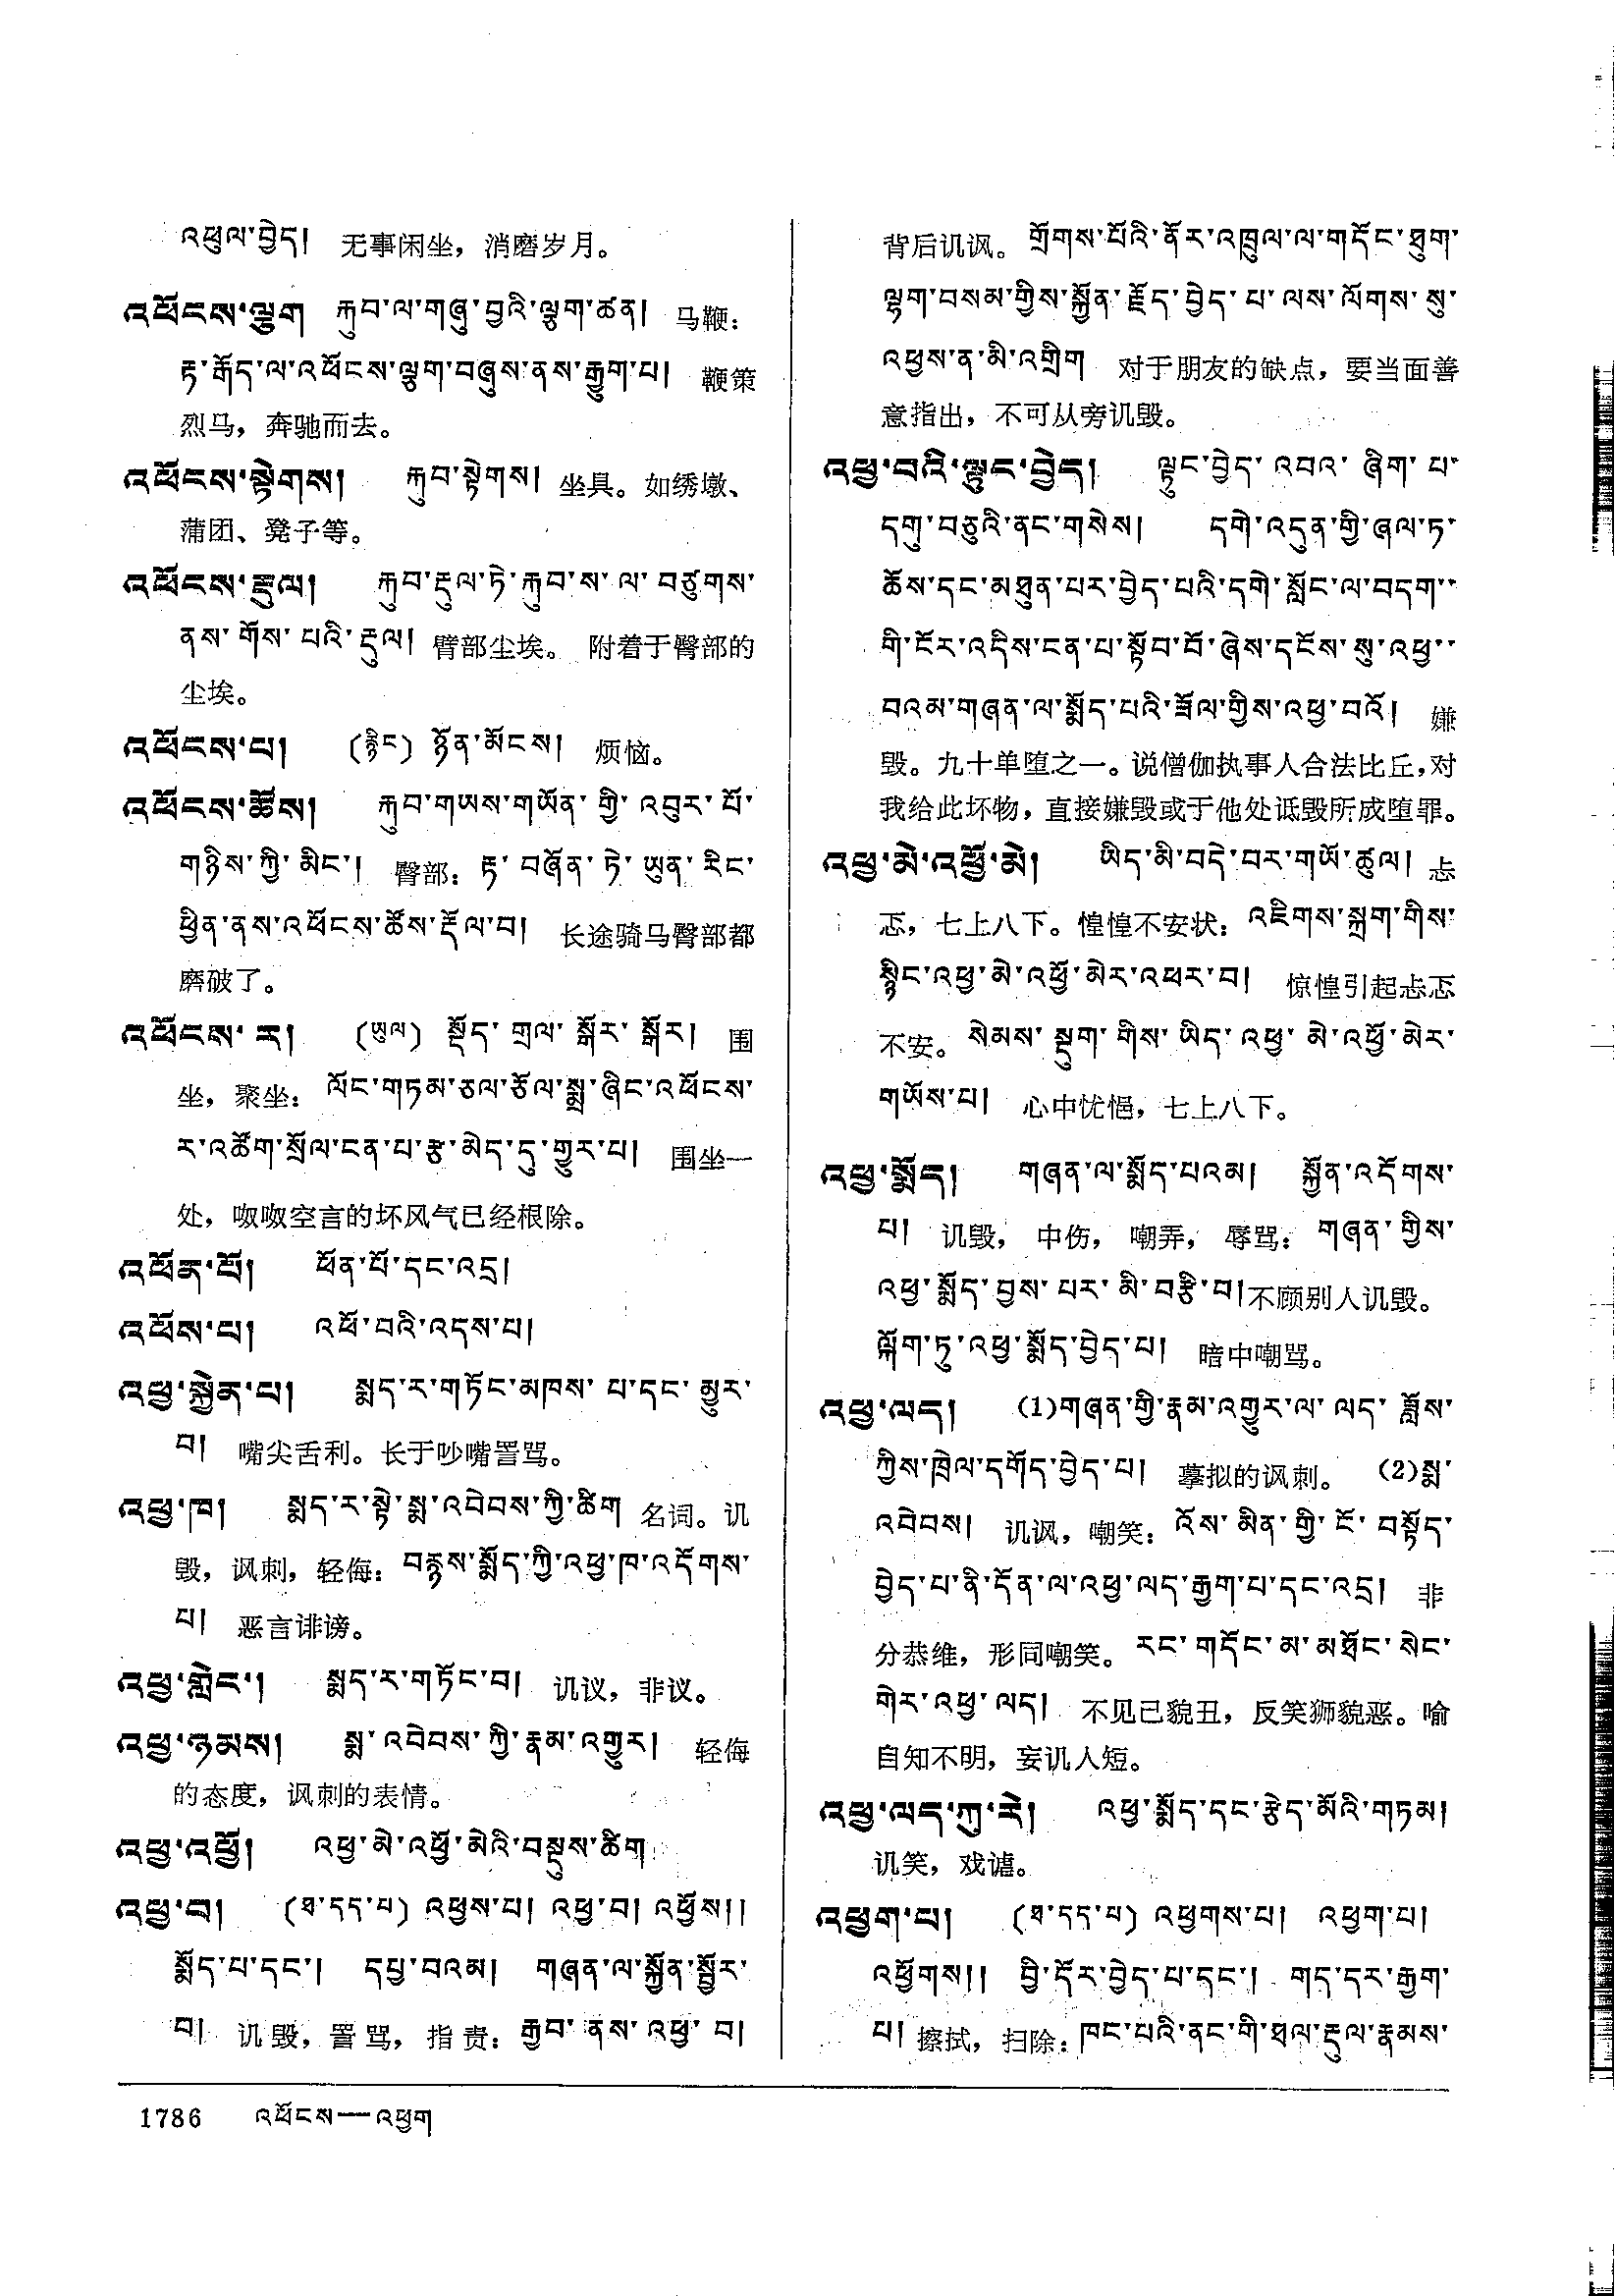 འཕུལ་བྱེད། 无事闲坐，消磨岁月。
འཕོངས་ལྕག རྐུབ་ལ་གཞུ་བྱའི་ལྕག་ཚན། 马鞭：
རྟ་རྒོད་ལ་འཕོངས་ལྕག་བཞུས་ནས་རྒྱུག་པ། 鞭策
烈马，奔驰而去。
འཕོངས་སྟེགས། རྐུབ་སྟེགས། 坐具。如绣墩、
蒲团、凳子等。
འཕོངས་རྡུལ། རྐུབ་རྡུལ་ཏེ་རྐུབ་ས་ལ་བཙུགས་
ནས་གོས་པའི་རྡུལ། 臀部尘埃。 附着于臀部的
尘埃。
འཕོངས་པ། (རྙིང) ཉོན་མོངས། 烦恼。
འཕོངས་ཚོས། རྐུབ་གཡས་གཡོན་གྱི་འབུར་པོ་
གཉིས་ཀྱི་མིང་། 臀部：རྟ་བཞོན་ཏེ་ཡུན་རིང་
ཕྱིན་ནས་འཕོངས་ཚོས་རྡོལ་བ། 长途骑马臀部都
磨破了。
འཕོངས་ར། (ཡུལ) སྡོད་གྲལ་སྒོར་སྒོར། 围
坐，聚坐：ལོང་གཏམ་ཅལ་ཅོལ་སྨྲ་ཞིང་འཕོངས་
ར་འཚོག་སྲོལ་ངན་པ་རྩ་མེད་དུ་གྱུར་པ། 围坐一
处，呶呶空言的坏风气已经根除。
འཕོན་པོ། ཕོན་པོ་དང་འདྲ།
འཕོས་པ། འཕོ་བའི་འདས་པ།
འཕྱ་སྐྱེན་པ། སྨད་ར་གཏོང་མཁས་པ་དང་མྱུར་
བ། 嘴尖舌利。长于吵嘴詈骂。
འཕྱ་ཁ། སྨད་ར་སྟེ་སྨ་འབེབས་ཀྱི་ཚིག 名词。讥
毁，讽刺，轻侮：བརྙས་སྨོད་ཀྱི་འཕྱ་ཁ་འདོགས་
པ། 恶言诽谤。
འཕྱ་གླེང་། སྨད་ར་གཏོང་བ། 讥议，非议。
འཕྱ་ཉམས། སྨ་འབེབས་ཀྱི་རྣམ་འགྱུར། 轻侮
的态度，讽刺的表情。
འཕྱ་འཕྱོ། འཕྱ་མེ་འཕྱོ་མེའི་བསྡུས་ཚིག
འཕྱ་བ། (ཐ་དད་པ) འཕྱས་པ། འཕྱ་བ། འཕྱོས།།
སྨོད་པ་དང་། དཔྱ་བའམ། གཞན་ལ་སྐྱོན་སྦྱོར་
བ། 讥毁，詈骂，指责：རྒྱབ་ནས་འཕྱ་བ།
背后讥讽。གྲོགས་པོའི་ནོར་འཁྲུལ་ལ་གདོང་ཐུག་
ལྷག་བསམ་གྱིས་སྐྱོན་རྗོད་བྱེད་པ་ལས་ལོགས་སུ་
འཕྱས་ན་མི་འགྲིག 对于朋友的缺点，要当面善
意指出，不可从旁讥毁。
འཕྱ་བའི་ལྟུང་བྱེད། ལྟུང་བྱེད་འབའ་ཞིག་པ་
དགུ་བཅུའི་ནང་གསེས། དགེ་འདུན་གྱི་ཞལ་ཏ་
ཆོས་དང་མཐུན་པར་བྱེད་པའི་དགེ་སློང་ལ་བདག་
གི་ངོར་འདིས་ངན་པ་སྟོབ་བོ་ཞེས་དངོས་སུ་འཕྱ་
བའམ་གཞན་ལ་སྨོད་པའི་ཟོལ་གྱིས་འཕྱ་བའོ། 嫌
毁。九十单堕之一。说僧伽执事人合法比丘，对
我给此坏物，直接嫌毁或于他处诋毁所成堕罪。
འཕྱ་མེ་འཕྱོ་མེ། ཡིད་མི་བདེ་བར་གཡོ་ཚུལ། 忐
忑，七上八下。惶惶不安状：འཇིགས་སྐྲག་གིས་
སྙིང་འཕྱ་མེ་འཕྱོ་མེར་འཕར་བ། 惊惶引起忐忑
不安。སེམས་སྡུག་གིས་ཡིད་འཕྱ་མེ་འཕྱོ་མེར་
གཡོས་པ། 心中忧悒，七上八下。
འཕྱ་སྨོད། གཞན་ལ་སྨོད་པའམ། སྐྱོན་འདོགས་
པ། 讥毁，中伤，嘲弄，辱骂：གཞན་གྱིས་
འཕྱ་སྨོད་བྱས་པར་མི་བརྩི་བ།不顾别人讥毁。
ལྐོག་ཏུ་འཕྱ་སྨོད་བྱེད་པ། 暗中嘲骂。
འཕྱ་ལད། (1)གཞན་གྱི་རྣམ་འགྱུར་ལ་ལད་ཟློས་
ཀྱིས་ཁྲེལ་དགོད་བྱེད་པ། 摹拟的讽刺。 (2)སྨ་
འབེབས། 讥讽，嘲笑：འོས་མིན་གྱི་ངོ་བསྟོད་
བྱེད་པ་ནི་དོན་ལ་འཕྱ་ལད་རྒྱག་པ་དང་འདྲ། 非
分恭维，形同嘲笑。རང་གདོང་མ་མཐོང་སེང་
གེར་འཕྱ་ལད། 不见己貌丑，反笑狮貌恶。喻
自知不明，妄讥人短。
འཕྱ་ལད་ཀུ་རེ། འཕྱ་སྨོད་དང་རྩེད་མོའི་གཏམ།
讥笑，戏谑。
འཕྱག་པ། (ཐ་དད་པ) འཕྱགས་པ། འཕྱག་པ།
འཕྱོགས།། བྱི་དོར་བྱེད་པ་དང་། གད་དར་རྒྱག་
པ། 擦拭，扫除：ཁང་པའི་ནང་གི་ཐལ་རྡུལ་རྣམས་
1786 འཕོངས—འཕྱག